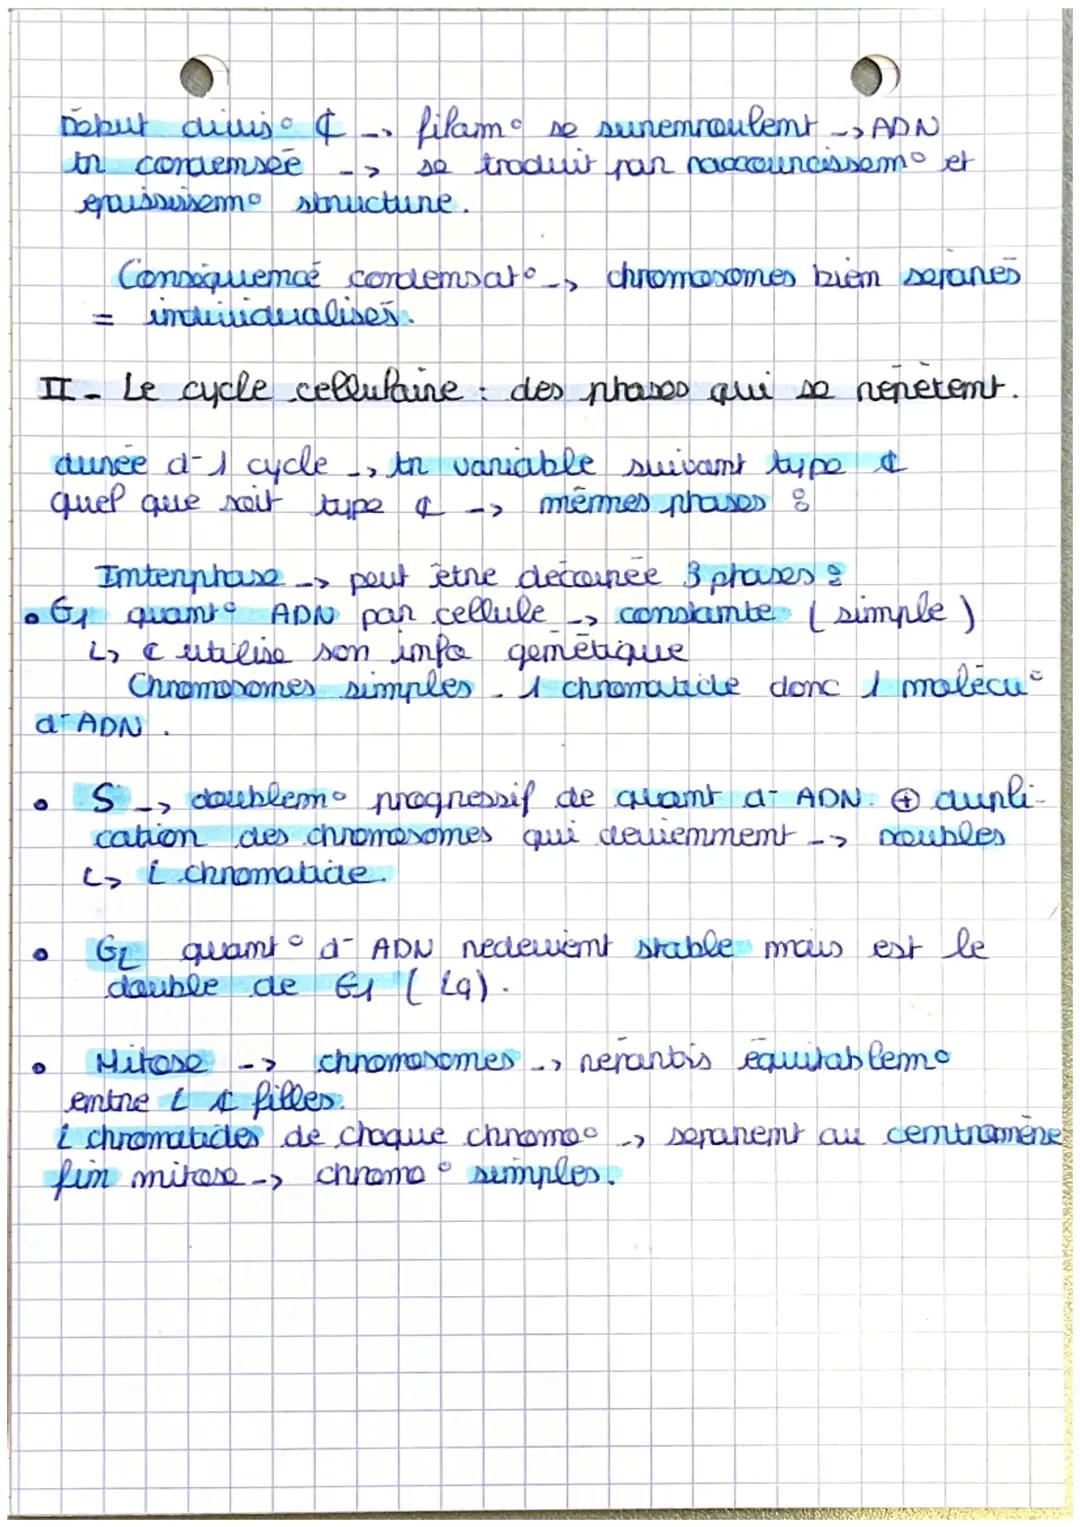 Début divis° ₵ --> filam° se surenroulent --> ADN
tr condensée --> se traduit par raccourcissem° et
épaississem° structure.
Conséquence condensat° --> chromosomes bien séparés
= individualisés.
II - Le cycle cellulaire : des phases qui se répètent.
durée d-1 cycle --> tr variable suivant type ₵
quel que soit type ₵ --> mêmes phases :
Interphase --> peut être découpée 3 phases :
• G1 quant° ADN par cellule --> constante (simple)
↳ ₵ utilise son info génétique
Chromosomes simples - 1 chromatide donc 1 molécu°
d-ADN.
• S --> doublem° progressif de quant d- ADN. ⊕ dupli-
cation des chromosomes qui deviennent --> doubles
↳ 2 chromatide.
• G2 quant° d- ADN redevient stable mais est le
double de G1 (2q).
• Mitose --> chromosomes --> répartis équitablem°
entre 2 ₵ filles.
2 chromatides de chaque chromo° --> séparent au centromère
fin mitose --> chromo° simples.